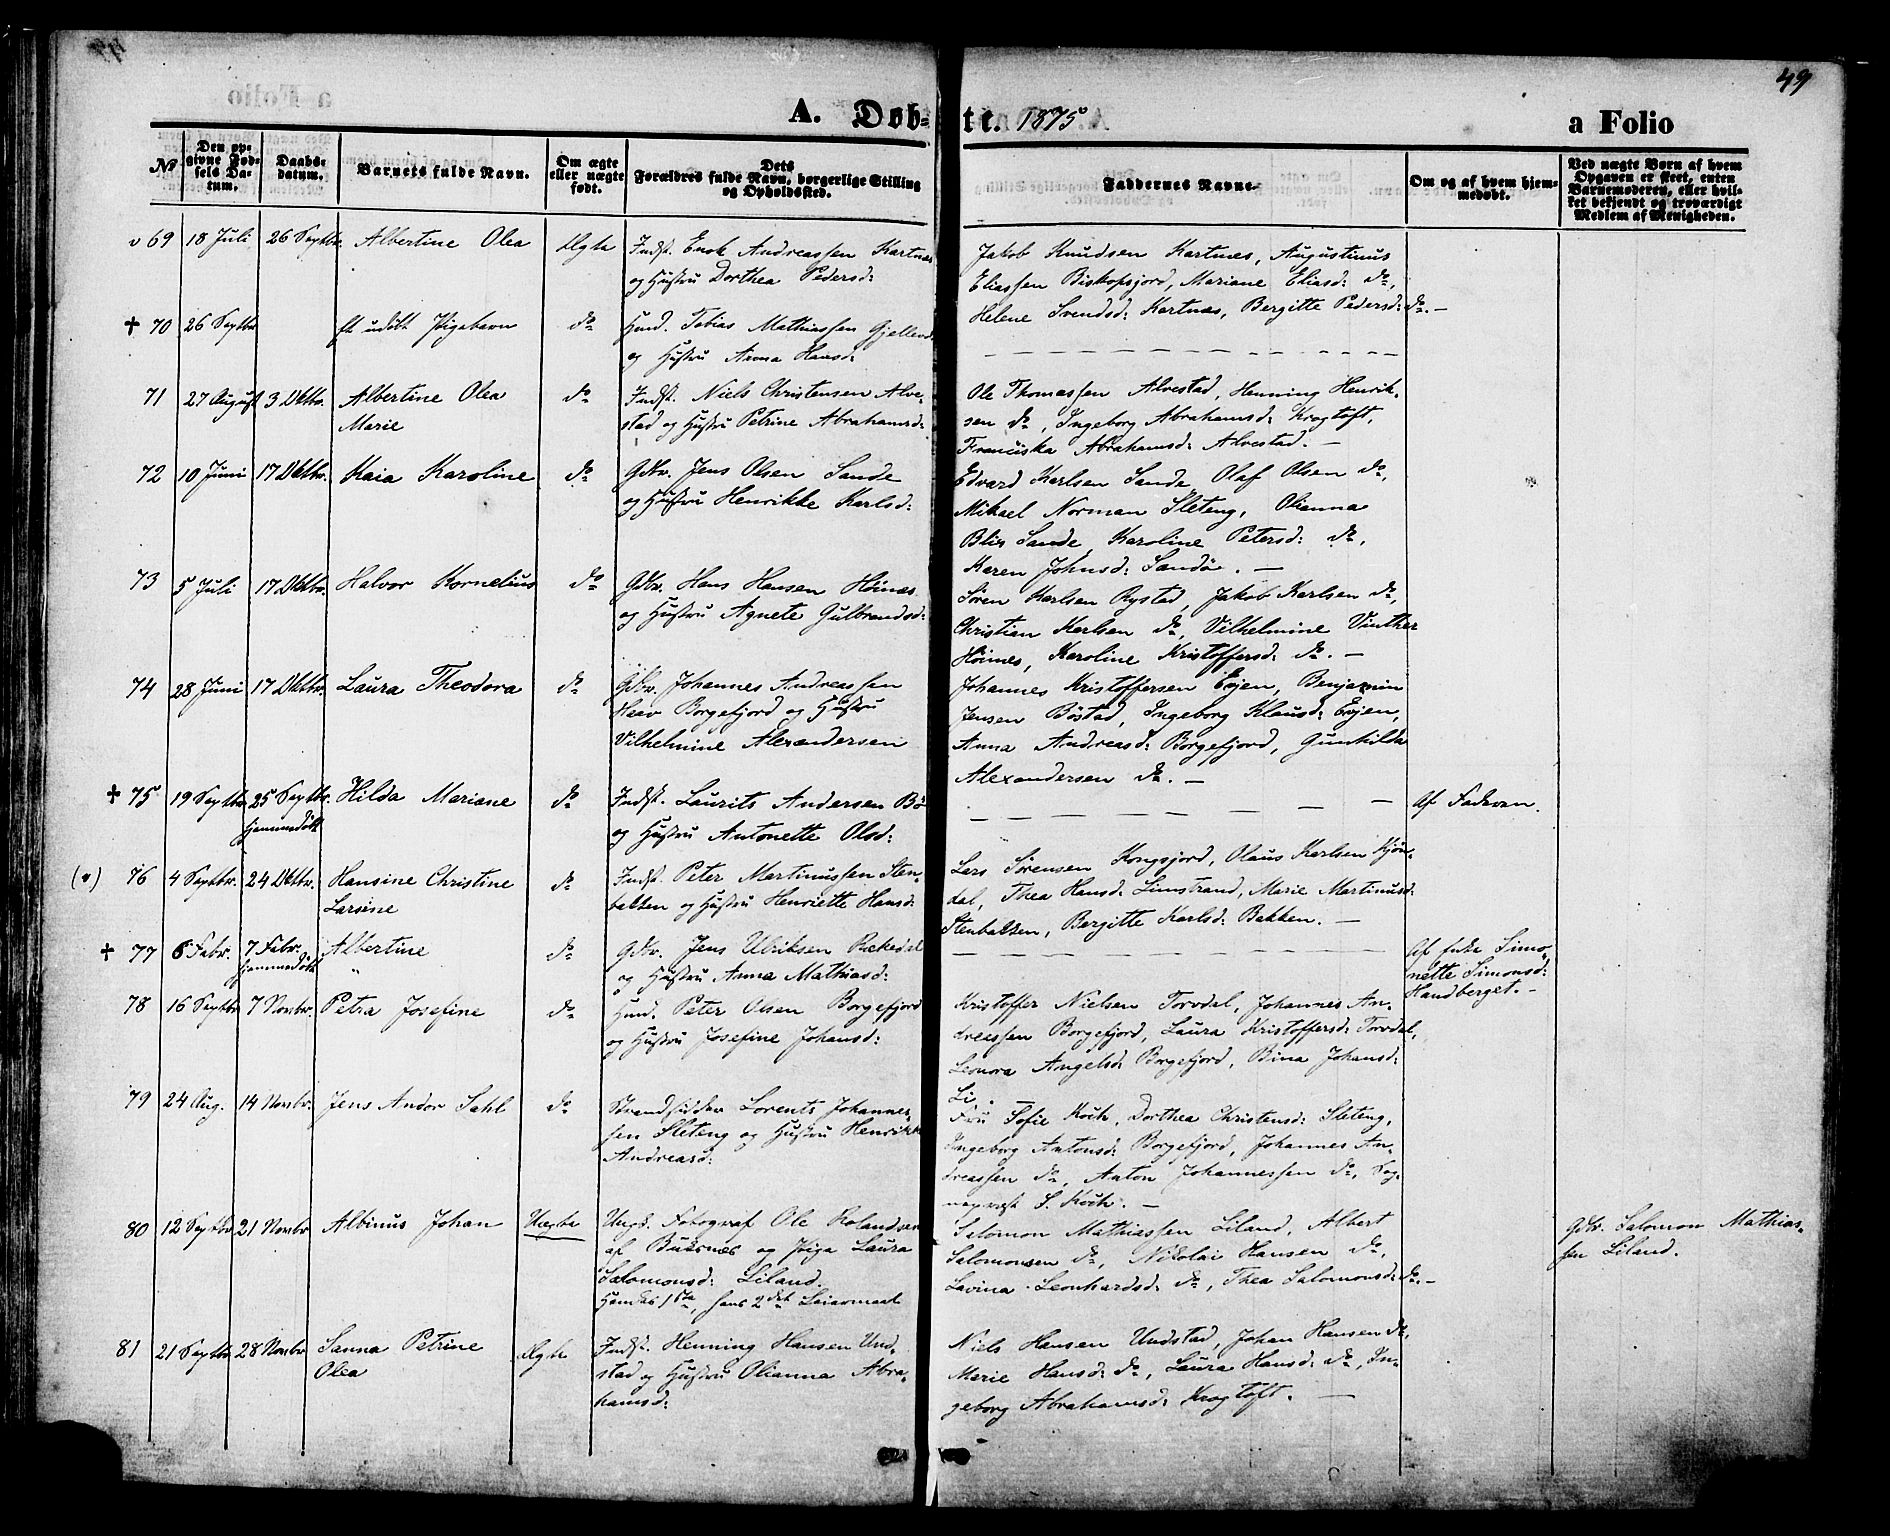 49
A. Døb-
te. 1875
a Folio
№
Den op-
givne Fød-
sels Da-
tum.
Daabs-
datum.
Barnets fulde Navn.
Om ægte
eller uægte
født.
Dets
Forældres fulde Navn, borgerlige Stilling
og Opholdssted.
Faddernes Navne.
Om og af hvem hjem-
medøbt.
Ved uægte Børn af hvem
Opgaven er skeet, enten
Barnemoderen, eller hvil-
ket bekjendt og troværdigt
Medlem af Menigheden.
v 69 18 Juli 26 Septbr. Albertine Olea Ægte
Indst. Enok Andreassen Kartnæs
og Hustru Dorthea Pedersd:
Jakob Knudsen Kartnæs, Augustinus
Eliassen Biskopsjord, Mariane Eliasd: do,
Helene Svendsd: Kartnæs, Bergitte Pedersd: do. —
† 70 26 Septbr. et udøbt Pigebarn do
Husd. Tobias Mathiassen
og Hustru Anna Hansd:
71 27 August 3 Oktbr. Albertine Olea
Marie
do
Indst. Niels Christensen Alve-
stad og Hustru Petrine Abrahamsd:
Ole Thomassen Alvestad, Henning Henrik-
sen do, Ingeborg Abrahamsd: Krogtoft,
Franciska Abrahamsd: Alvestad. —
72 10 Juni 17 Oktbr. Kaia Karoline do
Gdbr. Jens Olsen Sande
og Hustru Henrikke Karlsd:
Edvard Karlsen Sande, Olaf Olsen do,
Mikael Norman Sleteng, Olianna
Blix Sande, Karoline Petersd: do,
Karen Johnsd: Sandøe. —
73 5 Juli 17 Oktbr. Halvor Kornelius do
Gdbr. Hans Hansen Höinæs
og Hustru Agnete Gulbrandsd:
Sören Karlsen Rystad, Jakob Karlsen do,
Christian Karlsen do, Vilhelmine Vinther
Höines, Karoline Kristoffersd: do. —
74 28 Juni 17 Oktbr. Laura Theodora do
Gdbr. Johannes Andreassen
Haav Borgefjord og Hustru
Vilhelmine Alexandersen
Johannes Kristoffersen Evjen, Benjamin
Jensen Böstad, Ingeborg Klausd: Evjen,
Anna Andreasd: Borgefjord, Gunhilda
Alexandersen do. —
† 75 19 Septbr. 25 Septbr. Hilda Mariane do
hjemmedøbt
Indst. Laurits Andersen Bö
og Hustru Antonette Olsd:
Af Faderen.
(v) 76 4 Septbr. 24 Oktbr. Hansine Christine
Larsine
do
Indst. Peter Martinussen Sten-
bakken og Hustru Henriette Hansd:
Lars Sørensen Kongsjord, Olaus Karlsen Kjön-
dal, Thea Hansd: Limstrand, Marie Martinusd:
Stenbakken, Bergitte Karlsd: Bakken. —
† 77 6 Febr. 7 Febr. Albertine do
hjemmedøbt
Gdbr. Jens Ulriksen Rækedal
og Hustru Anna Mathiasd:
Af Enke Simo-
nette Simonsd:
Handberget. —
78 16 Septbr. 7 Novbr. Petra Josefine do
Husd. Peter Olsen Borgefjord
og Hustru Josefine Johansd:
Kristoffer Nielsen Torvdal, Johannes An-
dreassen Borgefjord, Laura Kristoffersd: Torvdal,
Leonora Angelsd: Borgefjord, Bina Johansd:
Li. —
79 24 Aug. 14 Novbr. Jens Andor Sahl do
Strandsidder Lorents Johannes-
sen Sleteng og Hustru Henrikke
Andreasd:
Fru Sofie Koch, Dorthea Christensd: Sleteng,
Ingeborg Antonsd: Borgefjord, Johannes An-
dreassen do, Anton Johannessen do, Sog-
nepræst S. Koch. —
80 12 Septbr. 21 Novbr. Albinus Johan Uægte
Ungk. Fotograf Ole Rolandsen
af Buksnæs og Pige Laura
Salomonsd: Liland.
Hendes 1ste, hans 2det Leiermaal
Salomon Mathiassen Liland, Albert
Salomonsen do, Nikolai Hansen do,
Lavina Leonhardsd: do, Thea Salomonsd: do. —
Gdbr. Salomon Mathias-
sen Liland.
81 21 Septbr. 28 Novbr. Sanna Petrine
Olea
Ægte
Indst. Henning Hansen Und-
stad og Hustru Olianna Abra-
hamsd:
Niels Hansen Undstad, Johan Hansen do,
Marie Hansd: do, Laura Hansd: do, In-
geborg Abrahamsd: Krogtoft. —